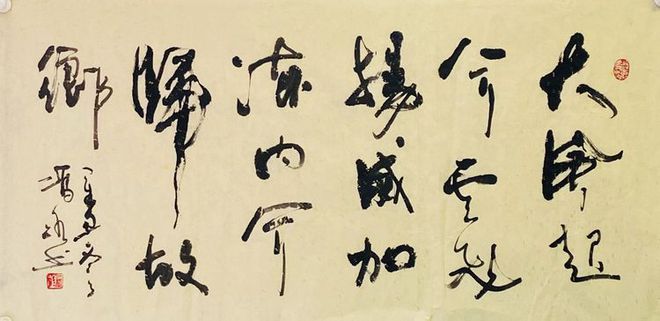 大風起
兮云飛
揚威加
海内兮
歸故
鄉